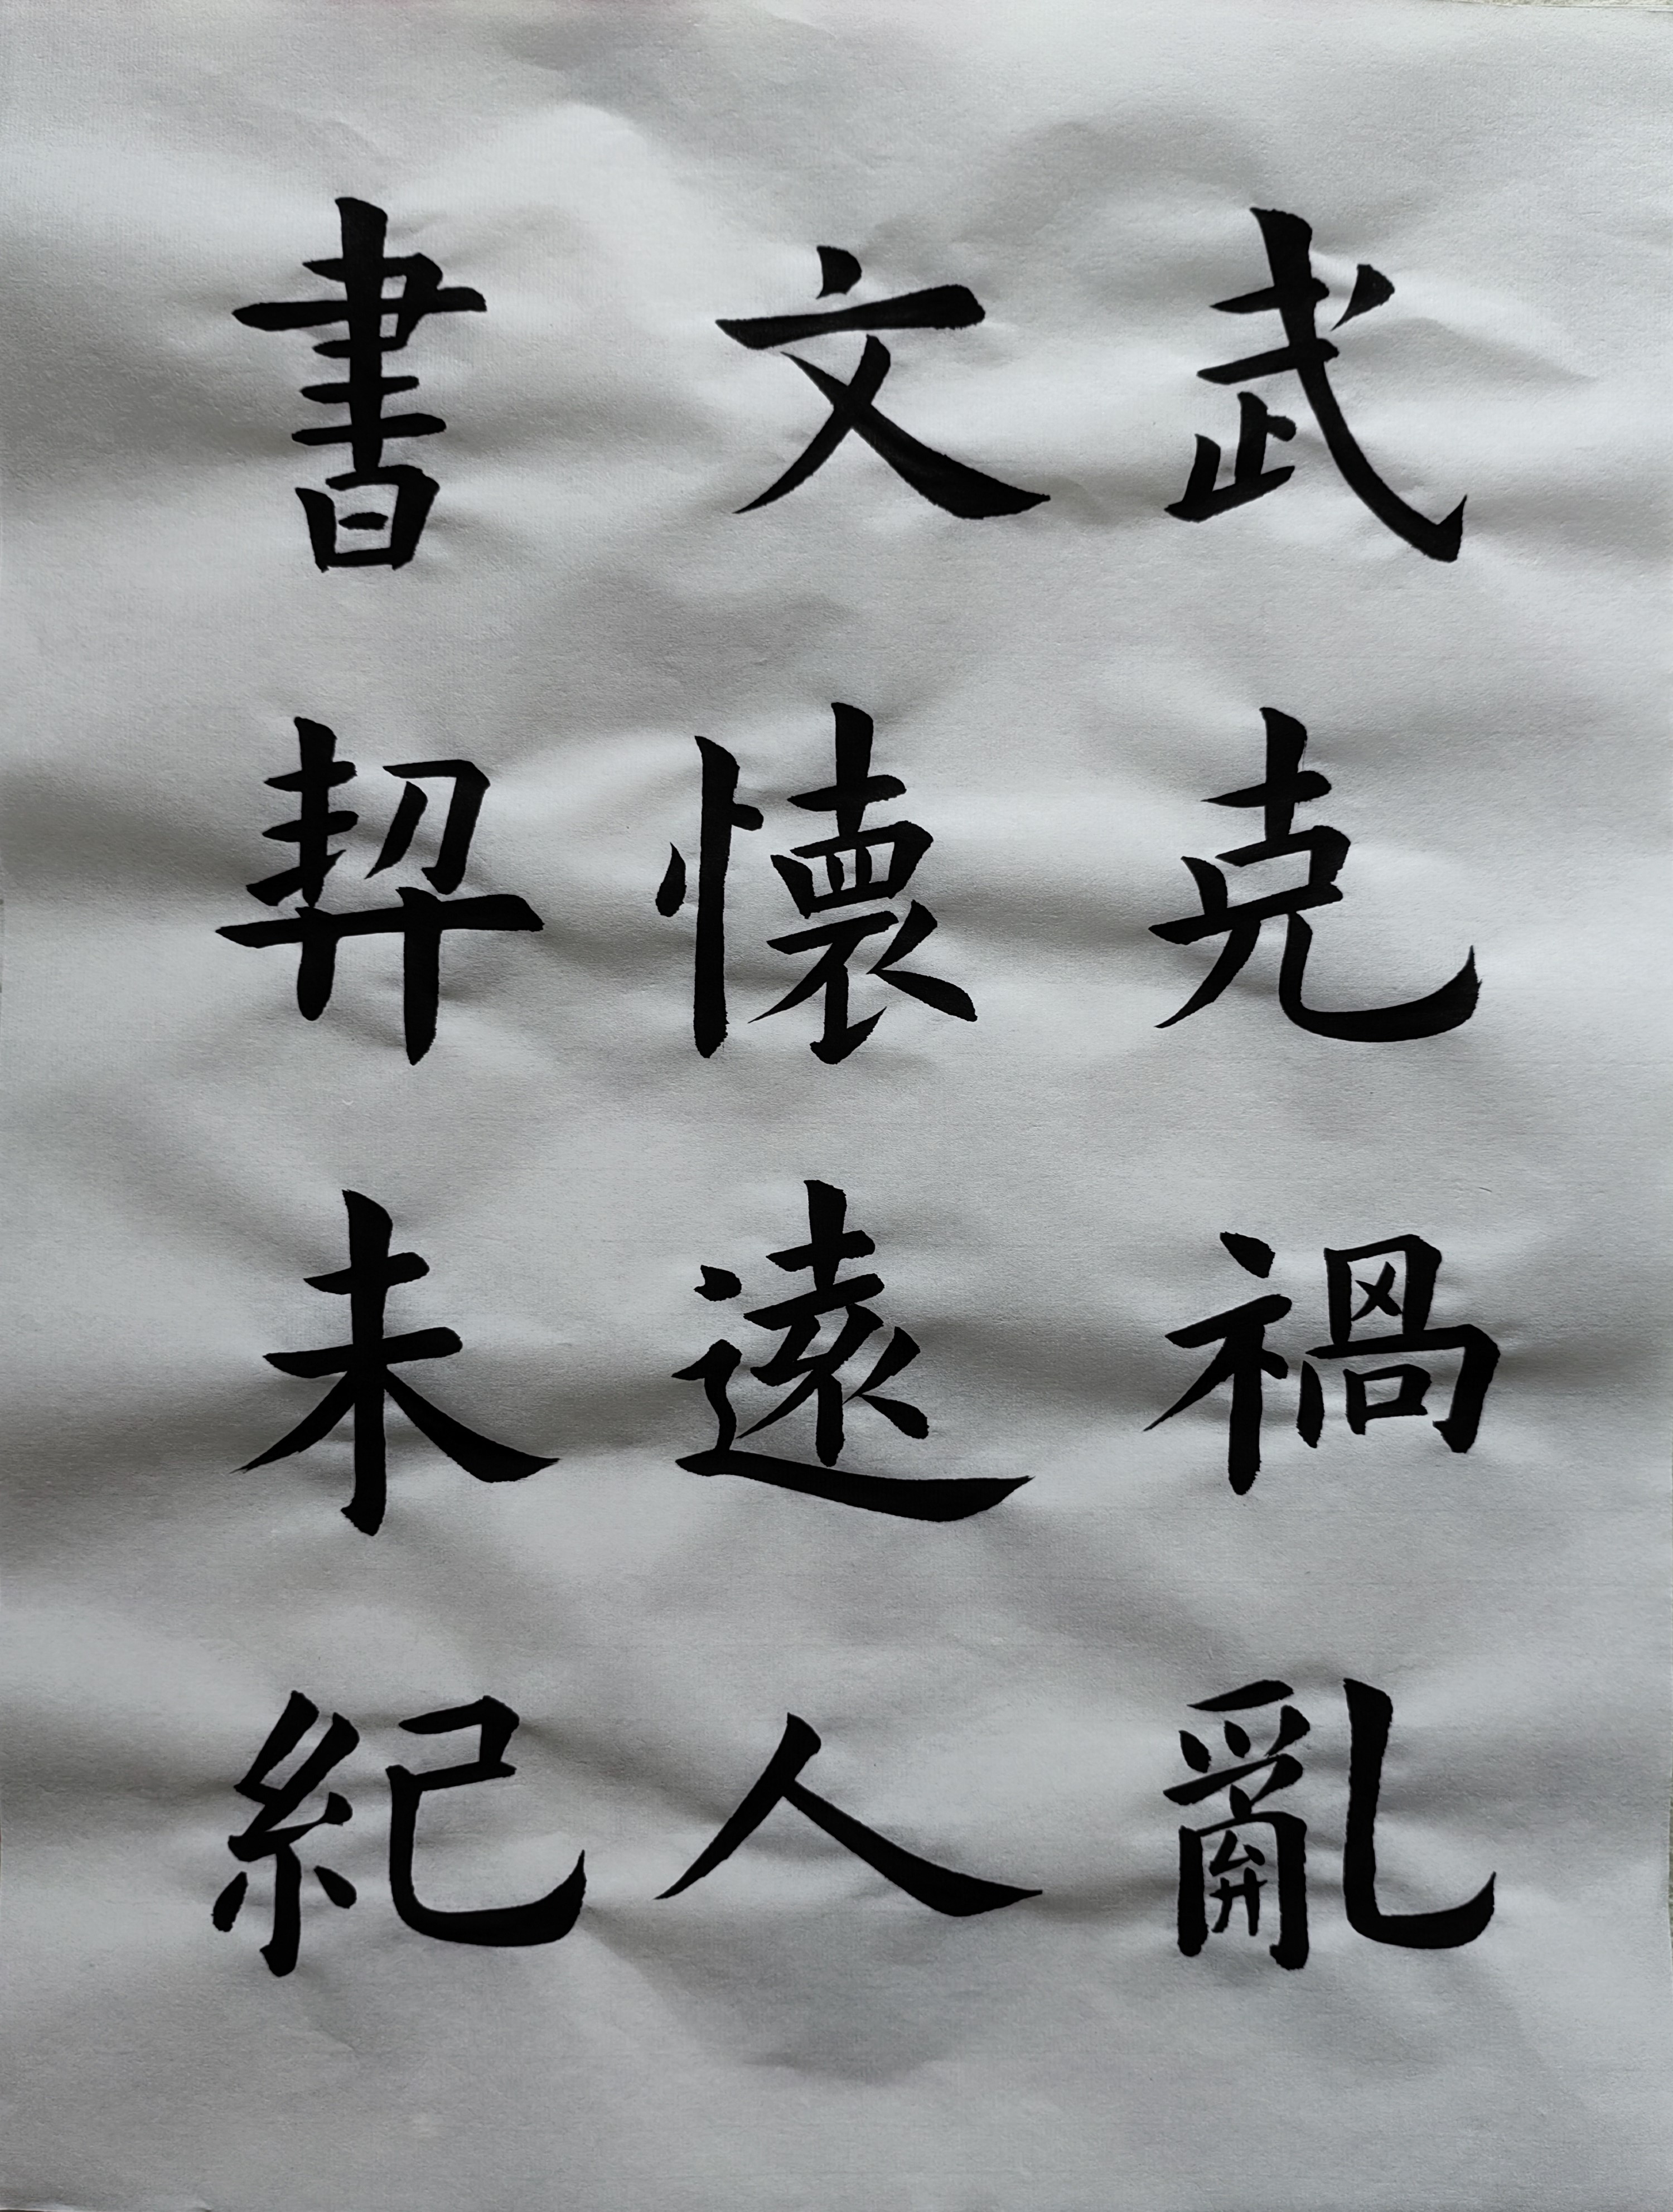 武克禍亂
文懷遠人
書契未紀